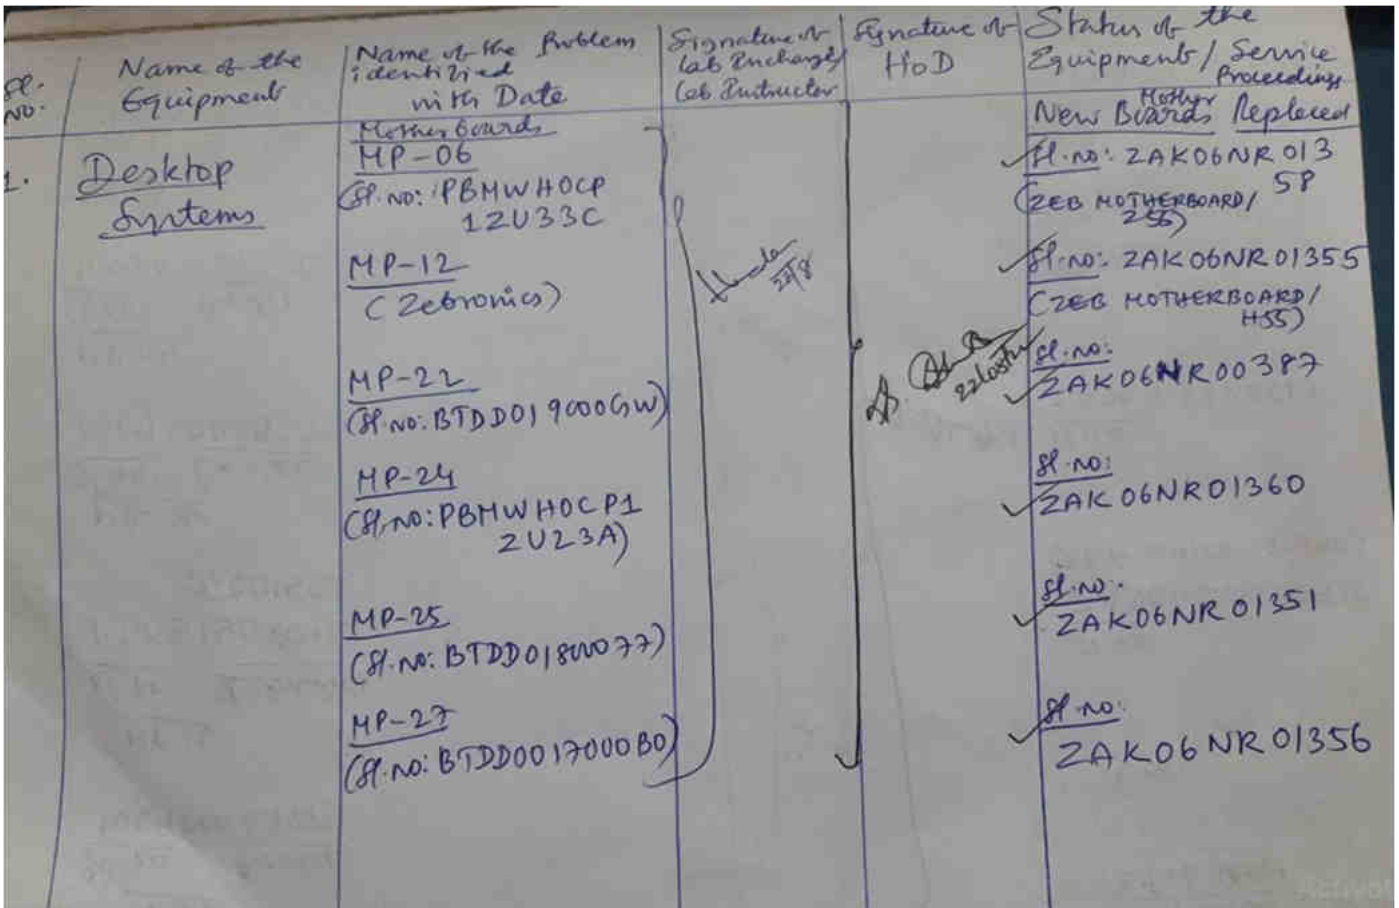 Sl. No.
Name of the Equipment
Name of the Problem identified with Date
Signature of Lab Incharge/ Lab Instructor
Signature of HoD
Status of the Equipment/ Service Proceedings
1.
Desktop
Systems
Mother boards
MP-06
(Sl.no: PBMWHOCP
12U33C
MP-12
(Zebronics)
MP-22
(Sl.no: BTDD019000GW)
MP-24
(Sl.no: PBMWHOCP1
2U23A)
MP-25
(Sl.no: BTDD01800077)
MP-27
(Sl.no: BTDD0017000B0)
22/8
New Mother Boards Replaced
Sl.no: ZAK06NR013
58
(ZEB MOTHERBOARD/
Sl.no: ZAK06NR01355
(ZEB MOTHERBOARD/
H55)
Sl.no:
ZAK06NR00387
Sl.no:
ZAK06NR01360
Sl.no:
ZAK06NR01351
Sl.no:
ZAK06NR01356